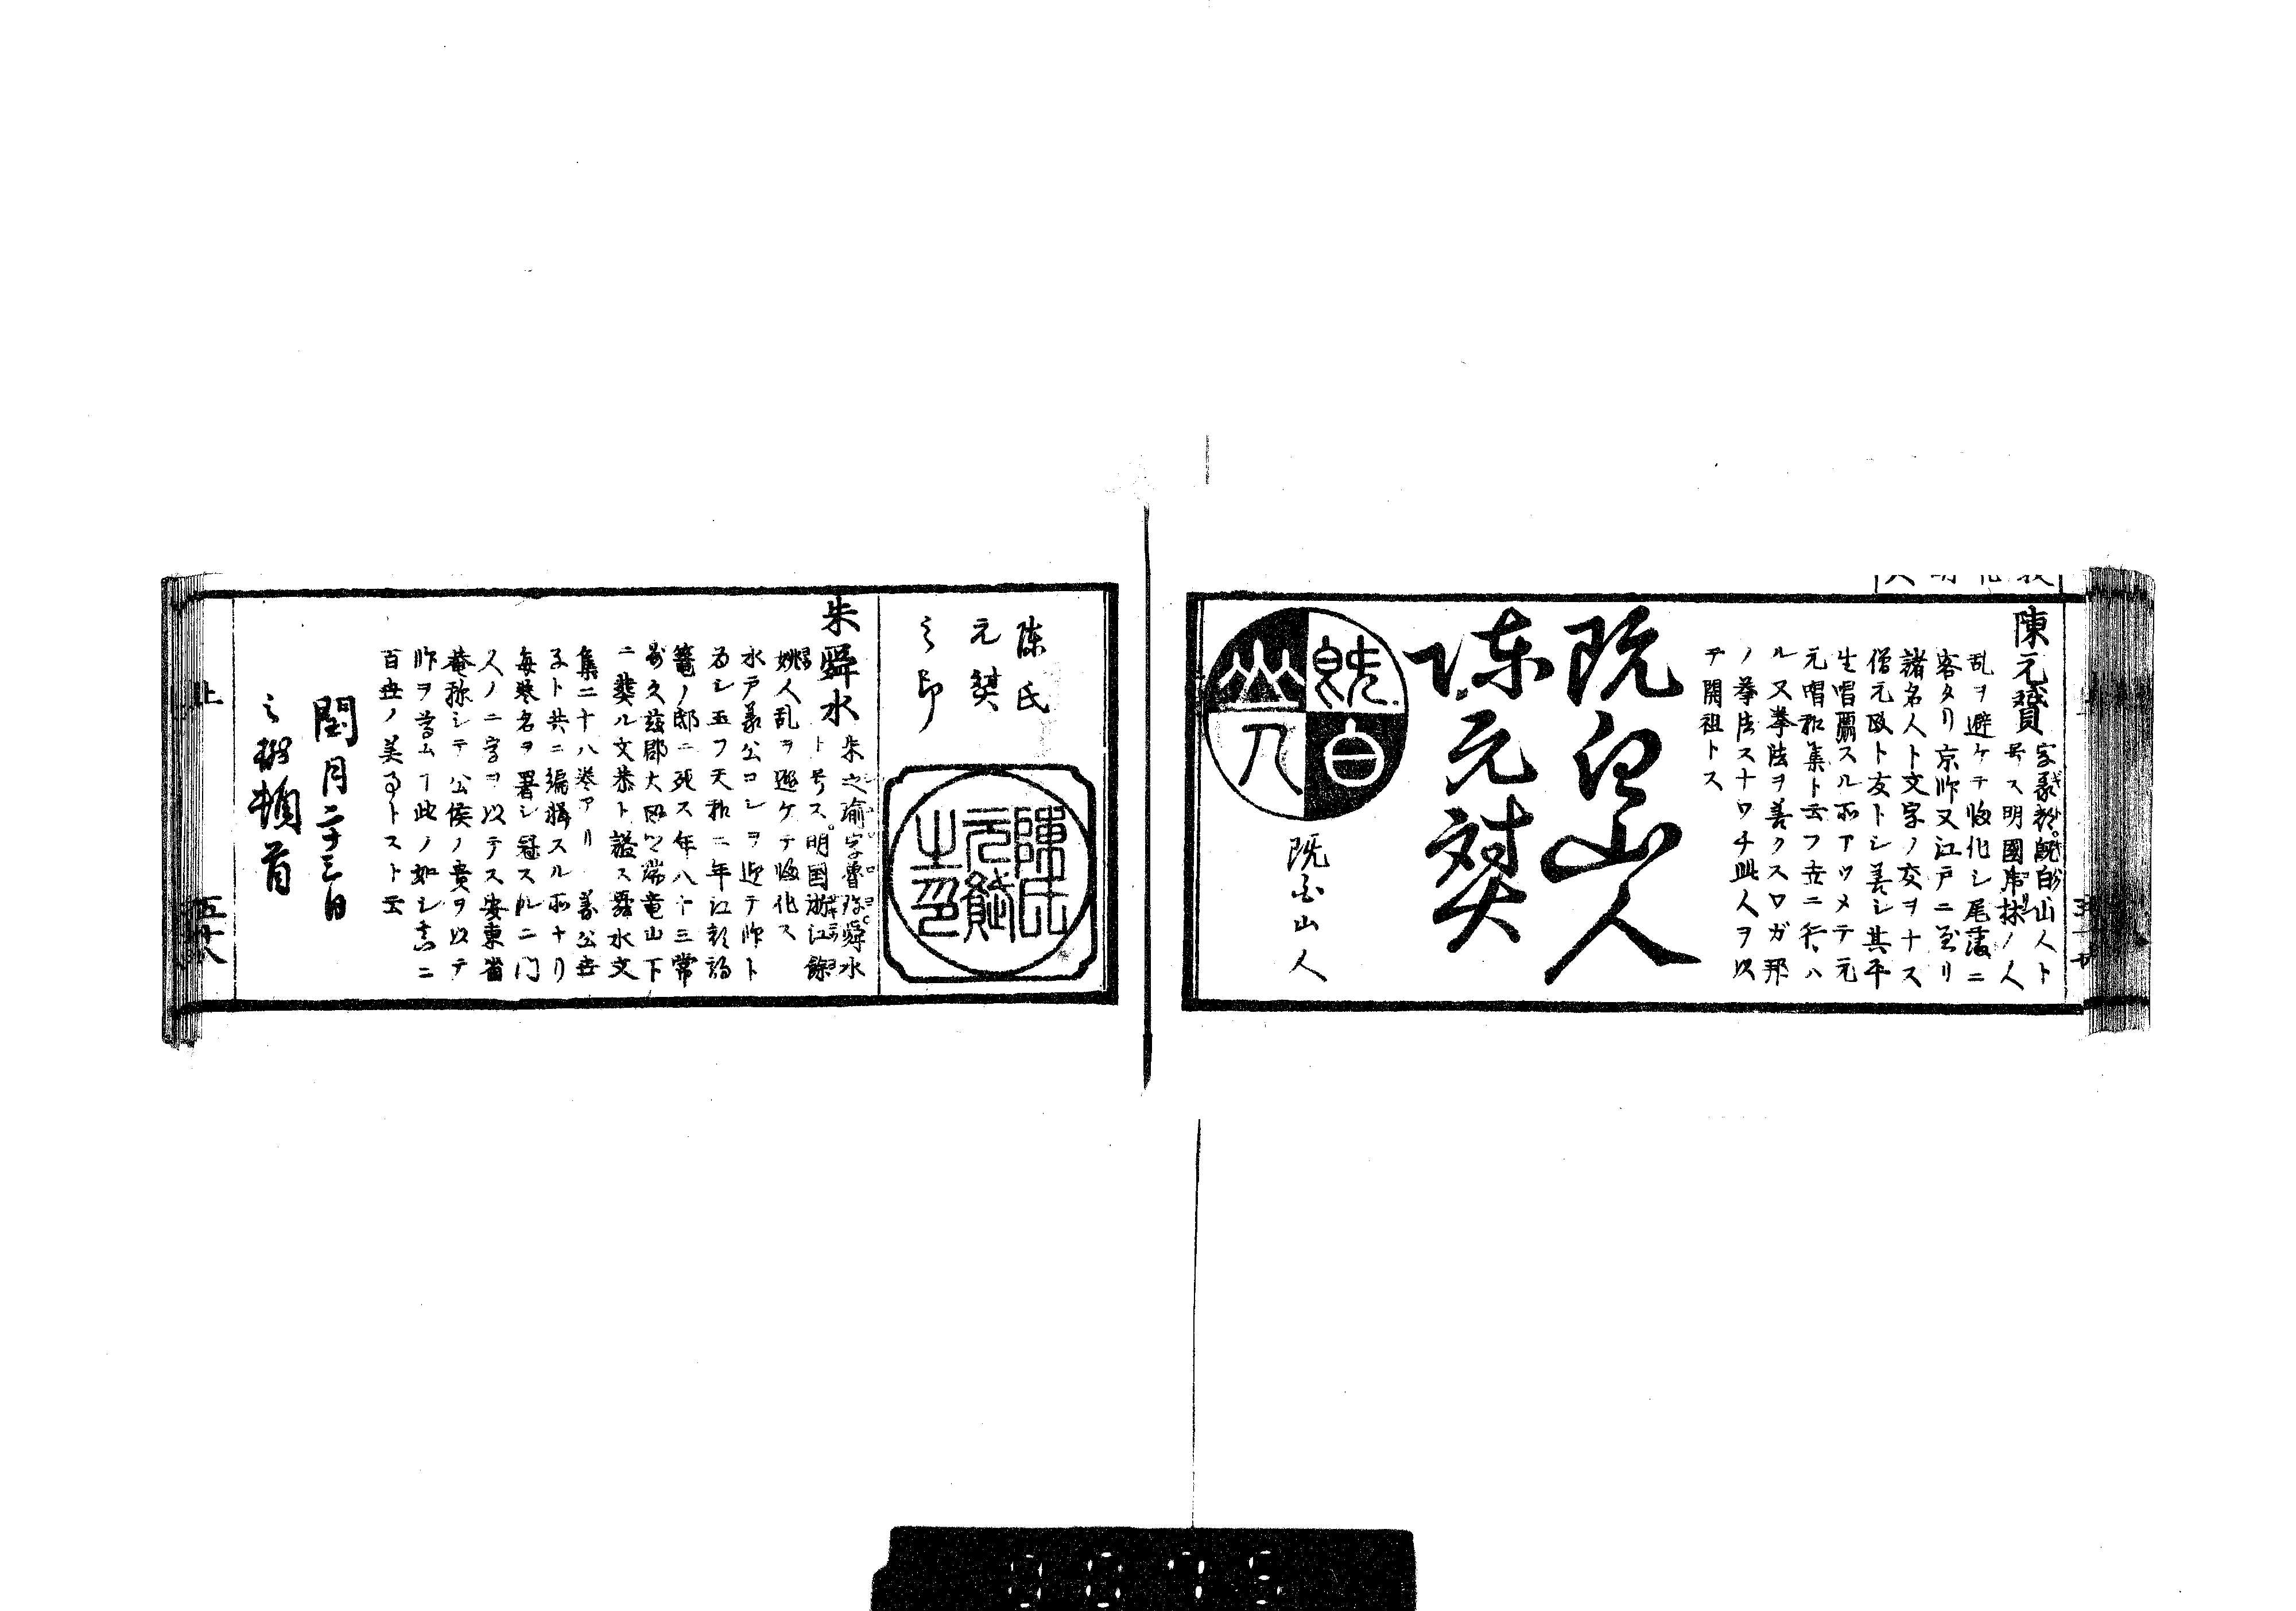 陳元贇
字義都。既白山人ト
号ス明國虎林ノ人
乱ヲ避ケテ帰化シ尾藩ニ
客タリ京師又江戸ニ至リ
諸名人ト文字ノ交ヲナス
僧元政ト友トシ善シ其平
生唱酬スル所アツメテ元
元唱和集ト云フ世ニ行ハ
ル又拳法ヲ善クス日ガ那
ノ拳法スナワチ此人ヲ以
テ開祖トス
既白山人
陳元贇
既白山人
既白山人
陳氏
元贇
之印
陳氏元贇之印
朱舜水
朱之瑜字魯璵舜水
ト号ス。明国浙江餘
姚人乱ヲ避ケテ帰化ス
水戸義公コレヲ迎テ師ト
為シ玉フ天和二年江都駒
篭ノ邸ニ死ス年八十三常
州久慈郡大田ノ瑞竜山下
ニ葬ル文恭ト謚ス舜水文
集二十八巻アリ義公世
子ト共ニ編輯スル所ナリ
毎巻名ヲ署シ冠スルニ門
人ノ二字ヲ以テス安東省
菴称シテ公侯ノ貴ヲ以テ
師ヲ尊ムヿ此ノ如シ真ニ
百世ノ美事トスト云
閏月二十三日
之瑜頓首
上
五十八